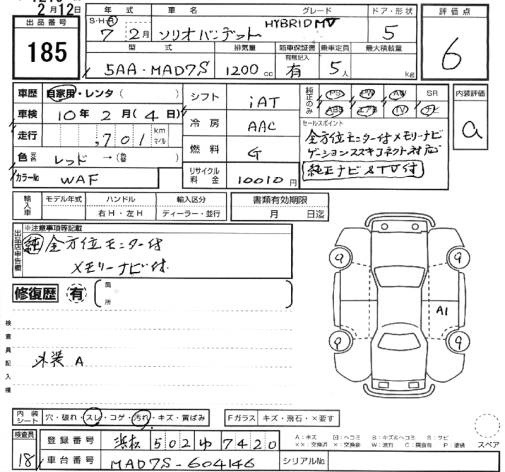 2月12日
出品番号
185
年式
車名
グレード
ドア・形状
評価点
S・H・R
7 2月
ソリオバンデット
HYBRID MV
5
6
型式
排気量
新車保証書
乗車定員
最大積載量
有無記入
5AA-MAD7S
1200cc
有
5人
kg
車歴
自家用・レンタ( )
シフト
iAT
純正のみ
PS
PW
AW
SR
内装評価
ABS
エアB
TV
ナビ
a
車検
10年2月(4日)
冷房
AAC
セールスポイント
走行
,701
km
マイル
全方位モニター付メモリーナビ
ゲーションスズキコネクト対応
純正ナビ&TV付
燃料
G
色
レッド →(
カラーNo
WAF
リサイクル料金
10010円
輸入車
モデル年式
ハンドル
輸入区分
書類有効期限
右H・左H
ディーラー・並行
月 日迄
出品店申告欄
※注意事項等記載
純 全方位モニター付
メモリーナビ付
修復歴
有
箇所
検査員記入欄
外装 A
9
9
9
9
A1
内装シート
穴・破れ・スレ・コゲ・汚れ・キズ・黄ばみ
Fガラス
キズ・飛石・×要す
検査員
18
登録番号
浜松 502 ゆ 7420
スペア
車台番号
MAD7S-604146
シリアルNo